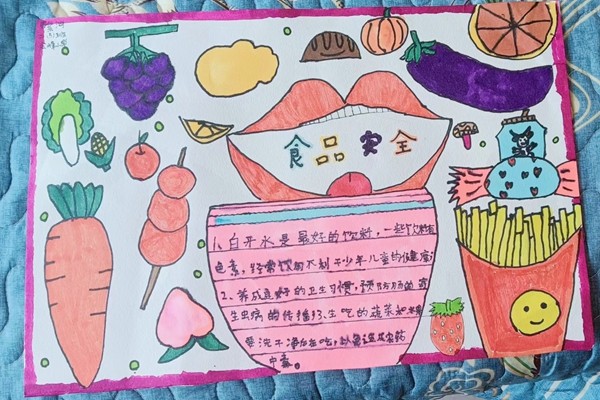 食品安全
1、白开水是最好的饮料，一些饮料有
色素，经常饮用不利于少年儿童的健康；
2、养成良好的卫生习惯，预防肠道寄
生虫病的传播3、生吃的蔬菜和水果
要洗干净后在吃，以免造成农药
中毒。